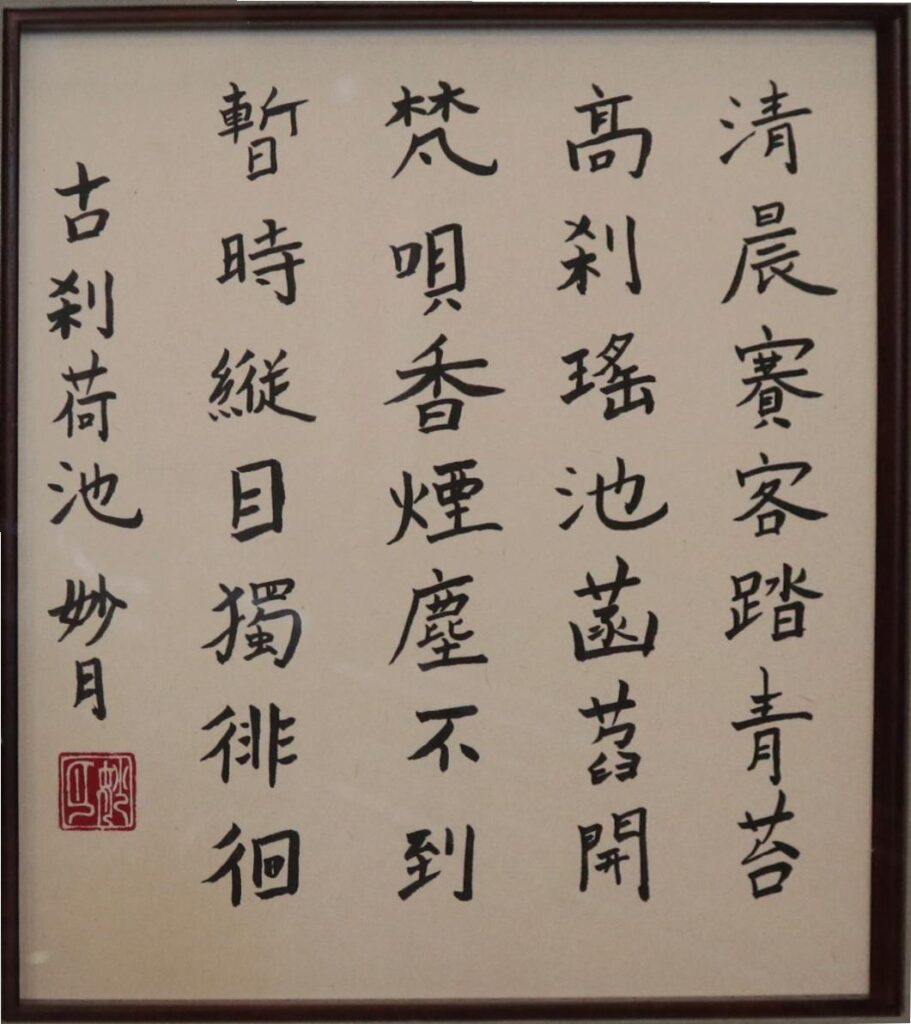 清晨賽客踏青苔
高刹瑤池菡萏開
梵唄香煙塵不到
暫時縱目獨徘徊
古刹荷池 妙月
妙月